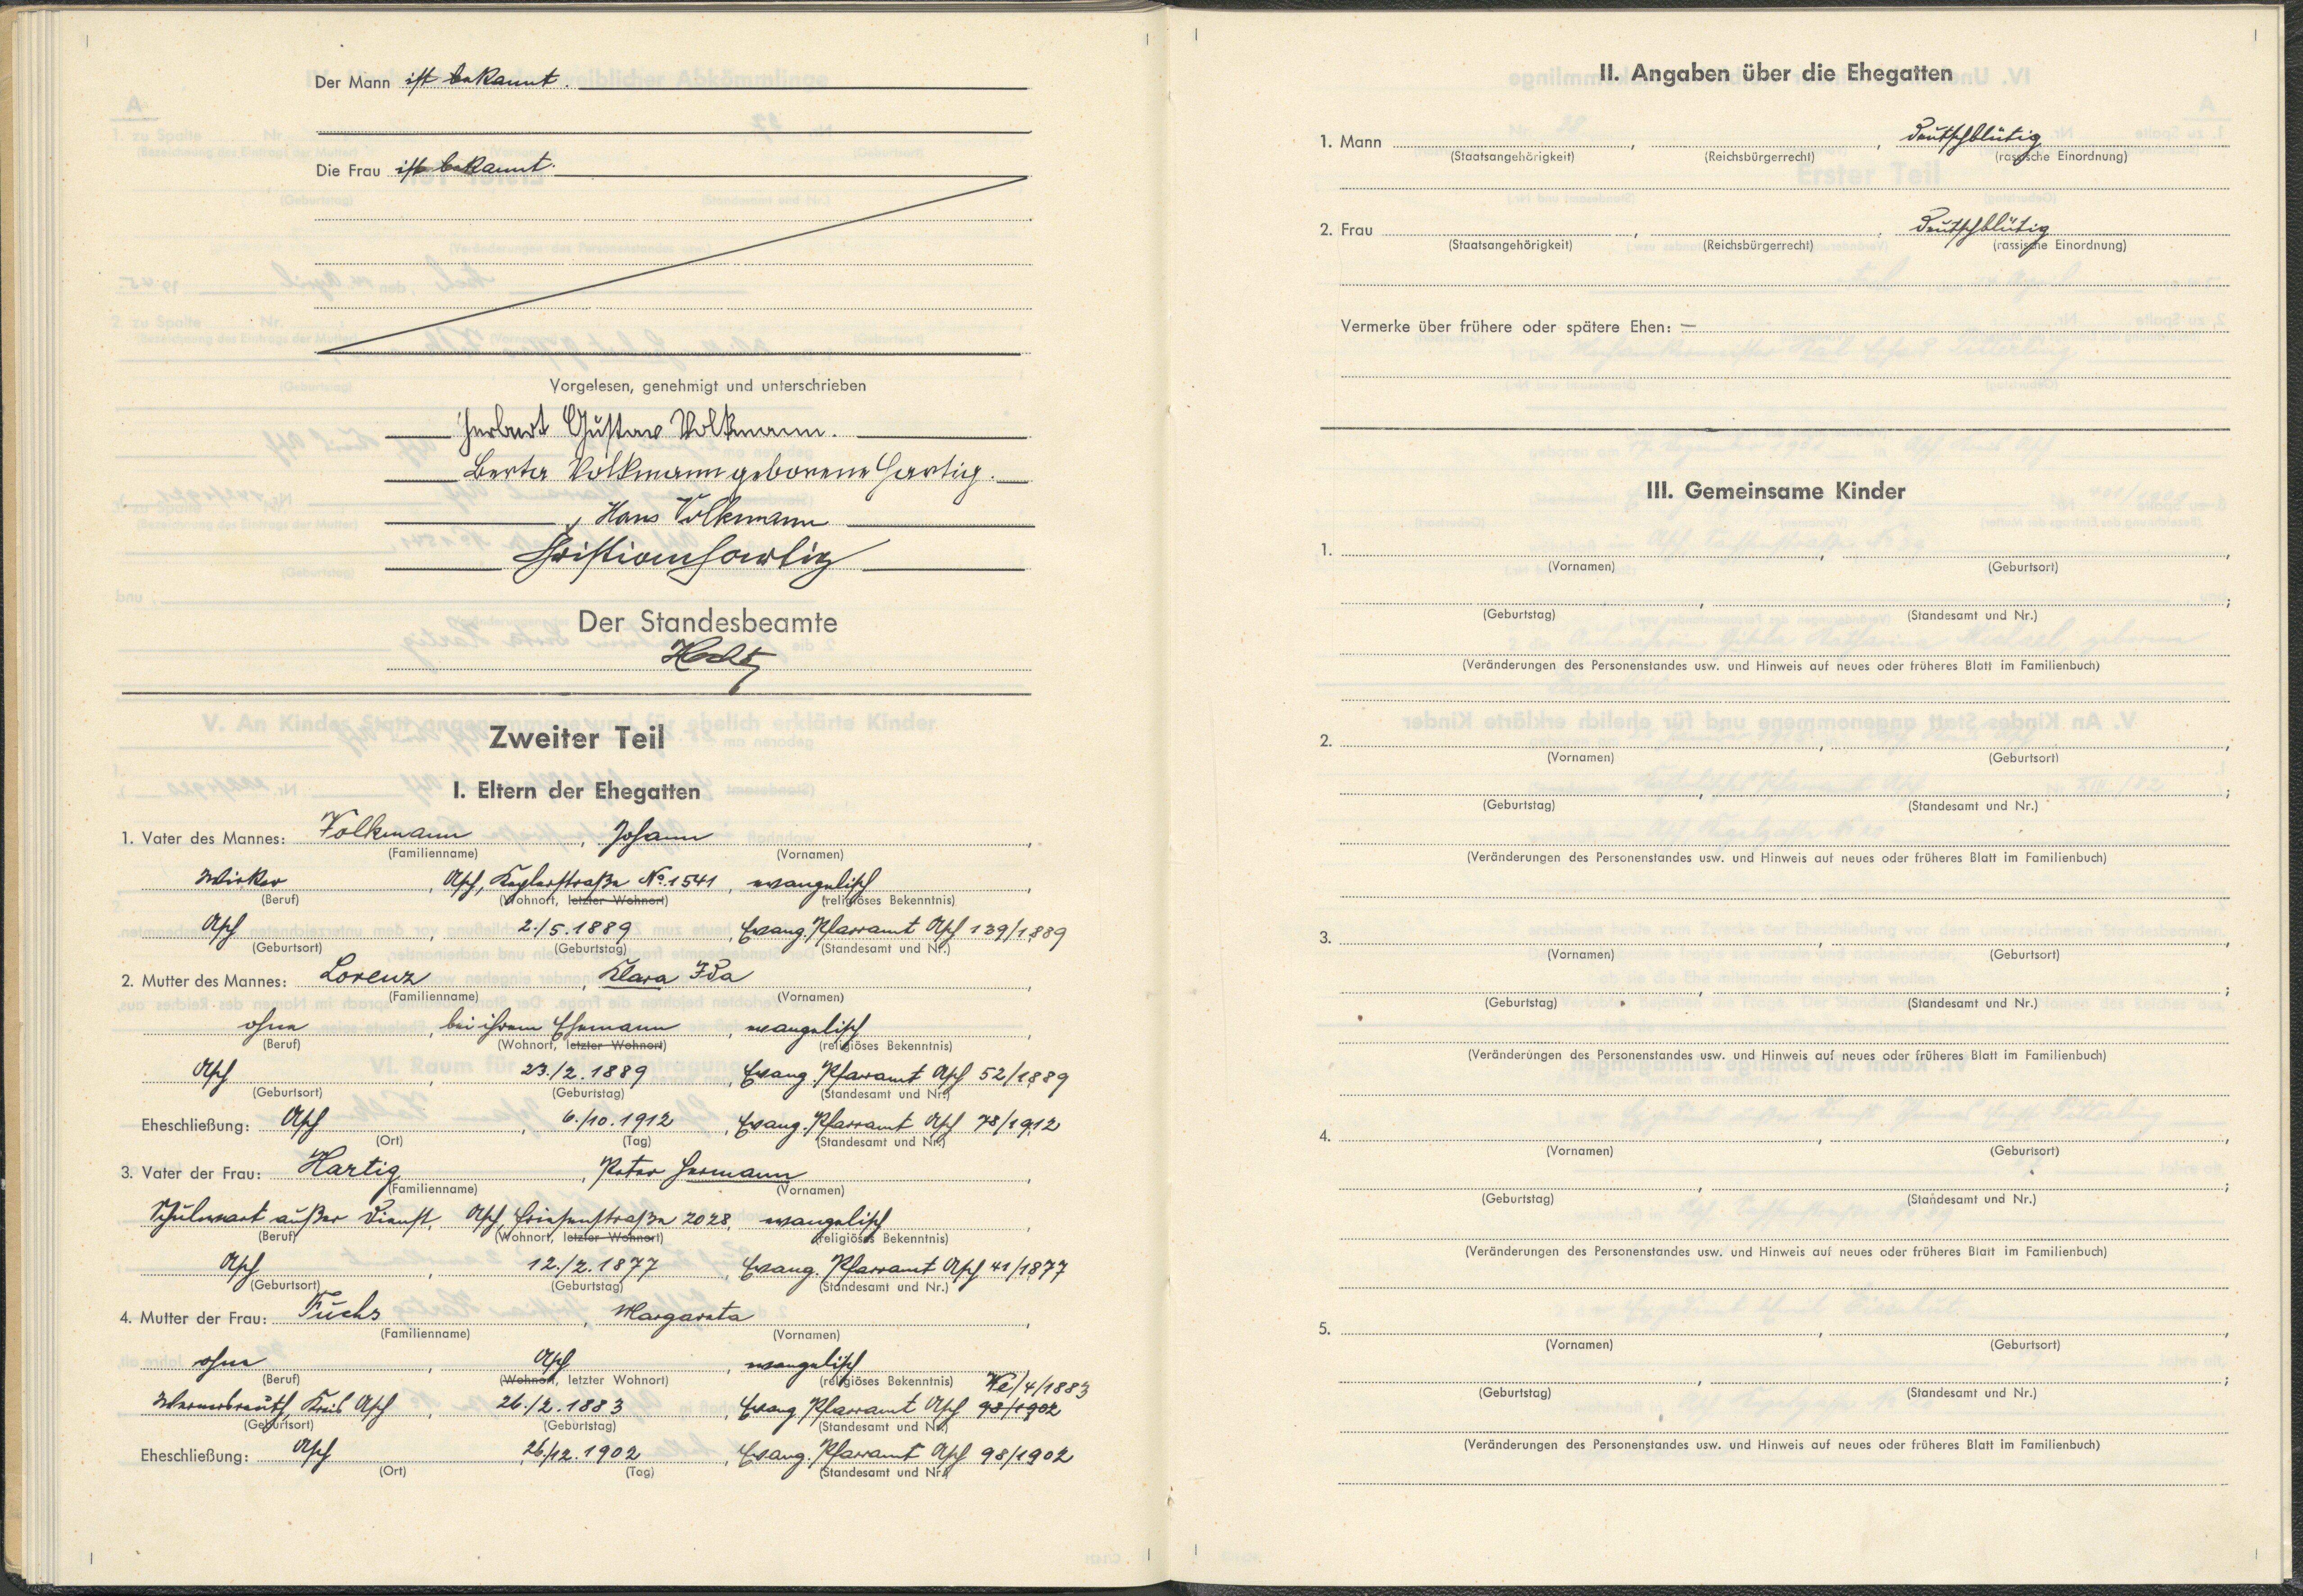 Der Mann ist bekannt.
Die Frau ist bekannt.
Vorgelesen, genehmigt und unterschrieben
Herbert Gustav Volkmann.
Berta Volkmann geborene Hartig.
Hans Volkmann
Christian Hartig
Der Standesbeamte
Zweiter Teil
I. Eltern der Ehegatten
1. Vater des Mannes: Volkmann, Johann
(Familienname) (Vornamen)
Wirker, Asch, Keplerstraße No. 1541, evangelisch
(Beruf) (Wohnort, letzter Wohnort) (religiöses Bekenntnis)
Asch, 2./5.1889, Evang. Pfarramt Asch 139/1889
(Geburtsort) (Geburtstag) (Standesamt und Nr.)
2. Mutter des Mannes: Lorenz, Klara Ida
(Familienname) (Vornamen)
ohne, bei ihrem Ehemann, evangelisch
(Beruf) (Wohnort, letzter Wohnort) (religiöses Bekenntnis)
Asch, 23./2.1889, Evang. Pfarramt Asch 52/1889
(Geburtsort) (Geburtstag) (Standesamt und Nr.)
Eheschließung: Asch, 6./10.1912, Evang. Pfarramt Asch 78/1912
(Ort) (Tag) (Standesamt und Nr.)
3. Vater der Frau: Hartig, Peter Hermann
(Familienname) (Vornamen)
Schulwart außer Dienst, Asch, Friesenstraße 2028, evangelisch
(Beruf) (Wohnort, letzter Wohnort) (religiöses Bekenntnis)
Asch, 12./2.1877, Evang. Pfarramt Asch 41/1877
(Geburtsort) (Geburtstag) (Standesamt und Nr.)
4. Mutter der Frau: Fuchs, Margareta
(Familienname) (Vornamen)
ohne, Asch, evangelisch
(Beruf) (Wohnort, letzter Wohnort) (religiöses Bekenntnis)
We/4/1883
Wernersreuth, Kreis Asch, 26./2.1883, Evang. Pfarramt Asch 98/1902
(Geburtsort) (Geburtstag) (Standesamt und Nr.)
Eheschließung: Asch, 26./12.1902, Evang. Pfarramt Asch 98/1902
(Ort) (Tag) (Standesamt und Nr.)
II. Angaben über die Ehegatten
1. Mann , , deutschblütig
(Staatsangehörigkeit) (Reichsbürgerrecht) (rassische Einordnung)
2. Frau , , deutschblütig
(Staatsangehörigkeit) (Reichsbürgerrecht) (rassische Einordnung)
Vermerke über frühere oder spätere Ehen: —
III. Gemeinsame Kinder
1. , ,
(Vornamen) (Geburtsort)
, ;
(Geburtstag) (Standesamt und Nr.)
(Veränderungen des Personenstandes usw. und Hinweis auf neues oder früheres Blatt im Familienbuch)
2. , ,
(Vornamen) (Geburtsort)
, ;
(Geburtstag) (Standesamt und Nr.)
(Veränderungen des Personenstandes usw. und Hinweis auf neues oder früheres Blatt im Familienbuch)
3. , ,
(Vornamen) (Geburtsort)
, ;
(Geburtstag) (Standesamt und Nr.)
(Veränderungen des Personenstandes usw. und Hinweis auf neues oder früheres Blatt im Familienbuch)
4. , ,
(Vornamen) (Geburtsort)
, ;
(Geburtstag) (Standesamt und Nr.)
(Veränderungen des Personenstandes usw. und Hinweis auf neues oder früheres Blatt im Familienbuch)
5. , ,
(Vornamen) (Geburtsort)
, ;
(Geburtstag) (Standesamt und Nr.)
(Veränderungen des Personenstandes usw. und Hinweis auf neues oder früheres Blatt im Familienbuch)